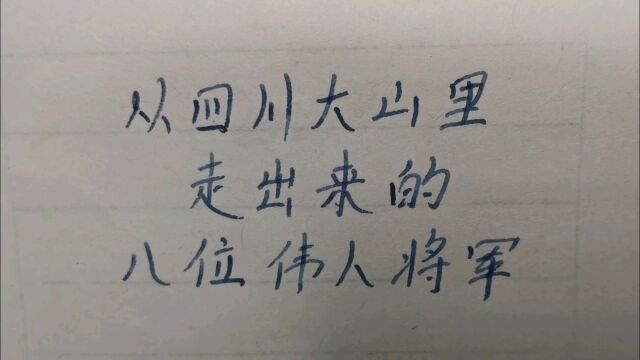 从四川大山里
走出来的
八位伟人将军